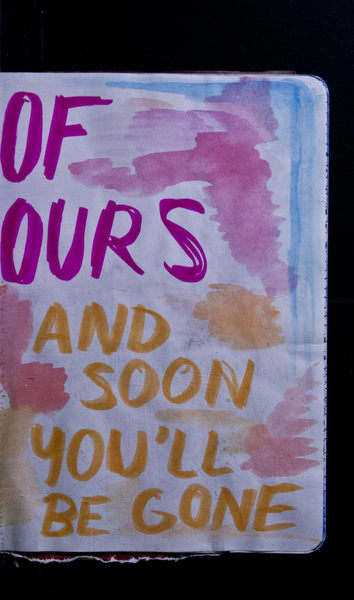 OF
OURS
AND
SOON
YOU'LL
BE GONE